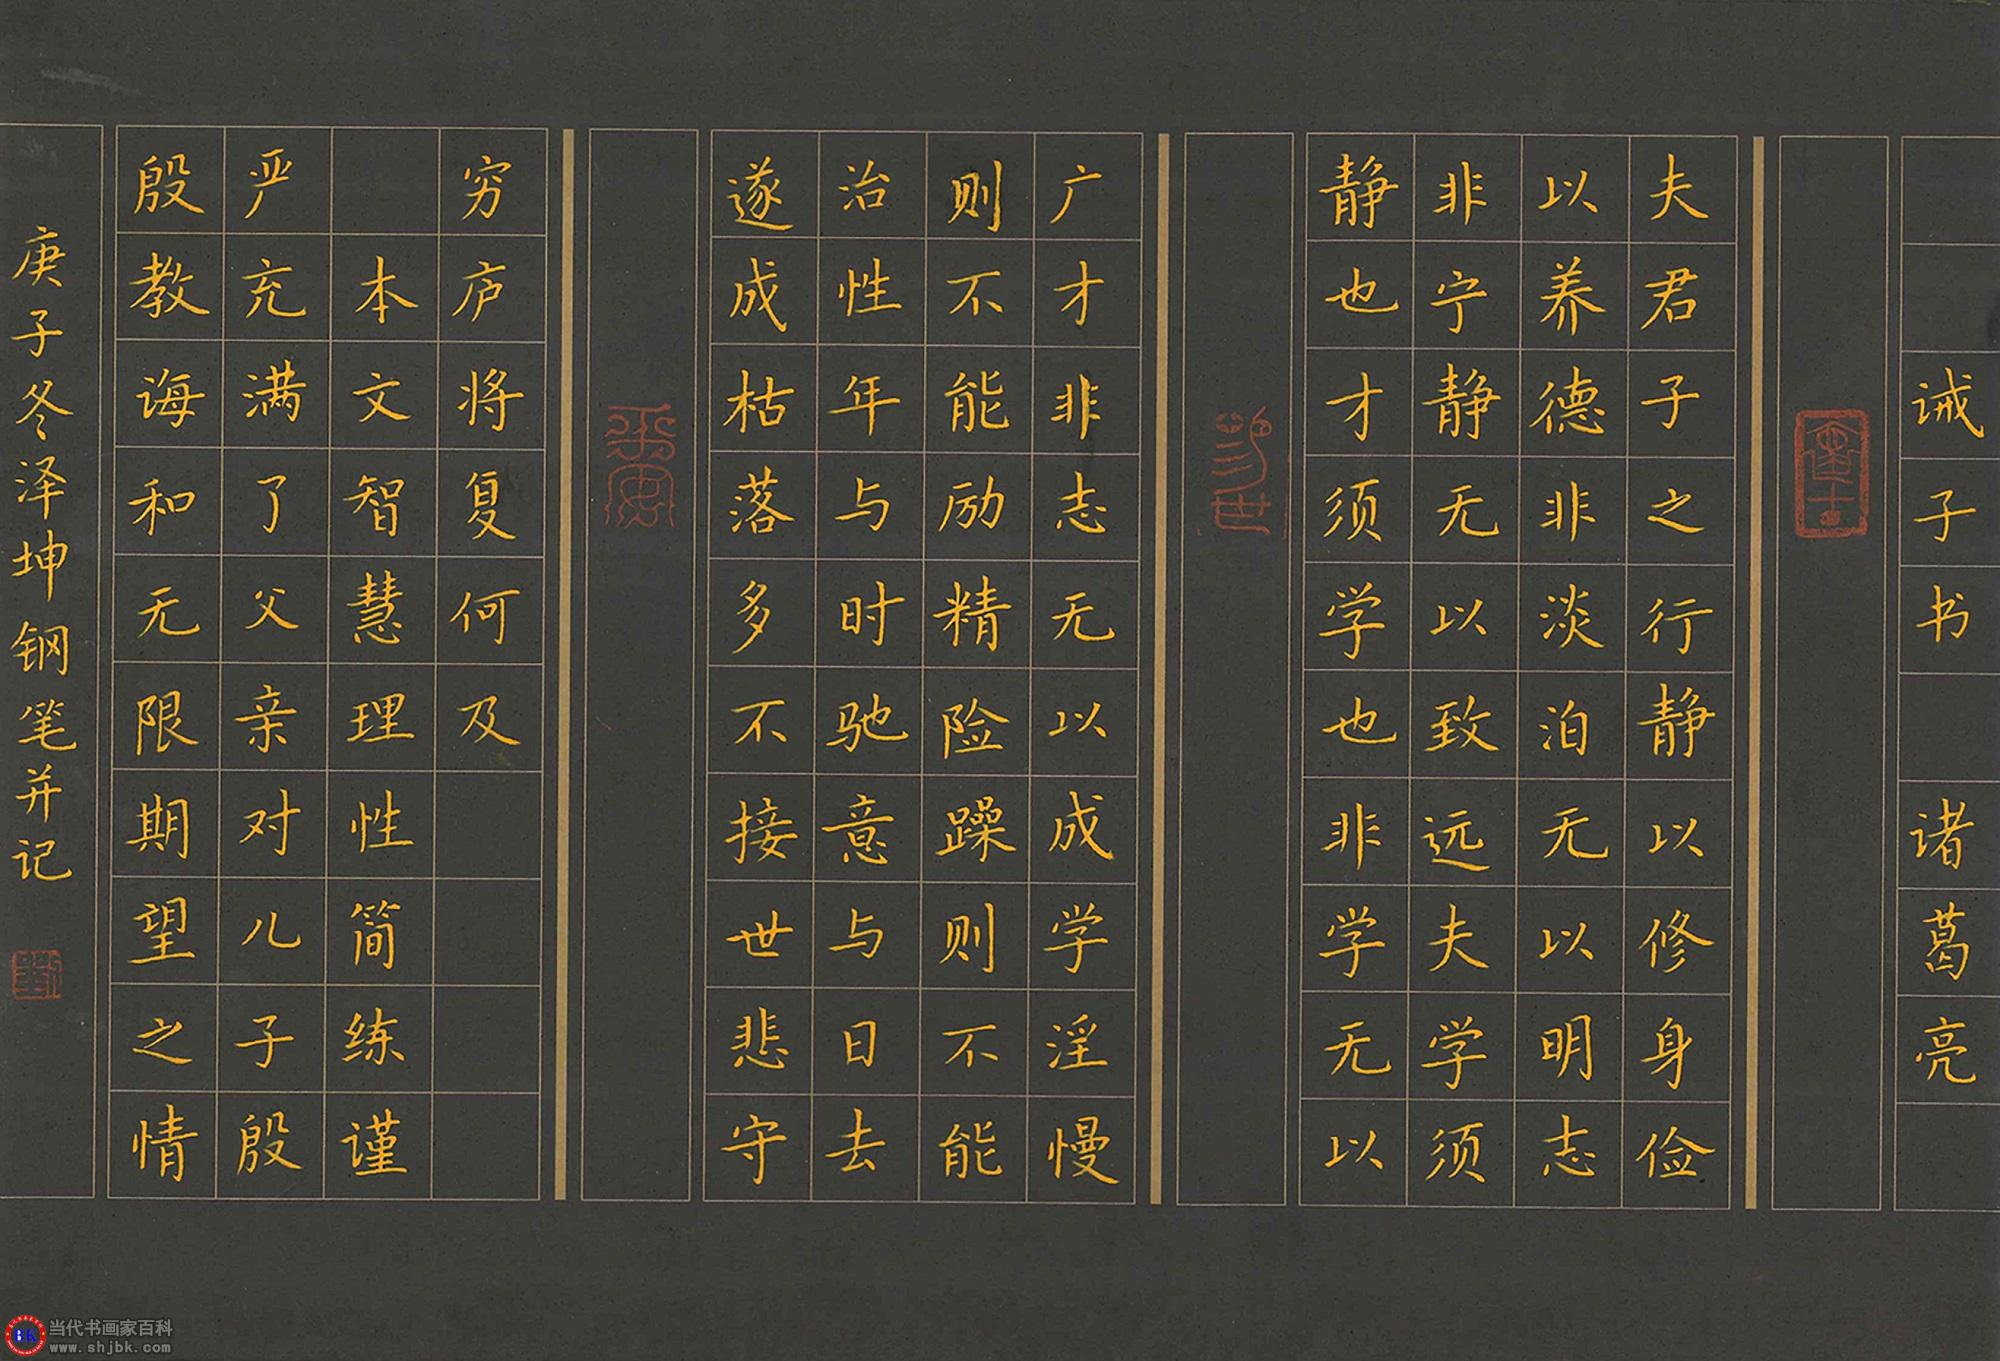 诫子书 诸葛亮
夫君子之行静以修身俭
以养德非淡泊无以明志
非宁静无以致远夫学须
静也才须学也非学无以
广才非志无以成学淫慢
则不能励精险躁则不能
治性年与时驰意与日去
遂成枯落多不接世悲守
穷庐将复何及
本文智慧理性简练谨
严充满了父亲对儿子殷
殷教诲和无限期望之情
庚子冬泽坤钢笔并记
当代书画家百科
www.shjbk.com